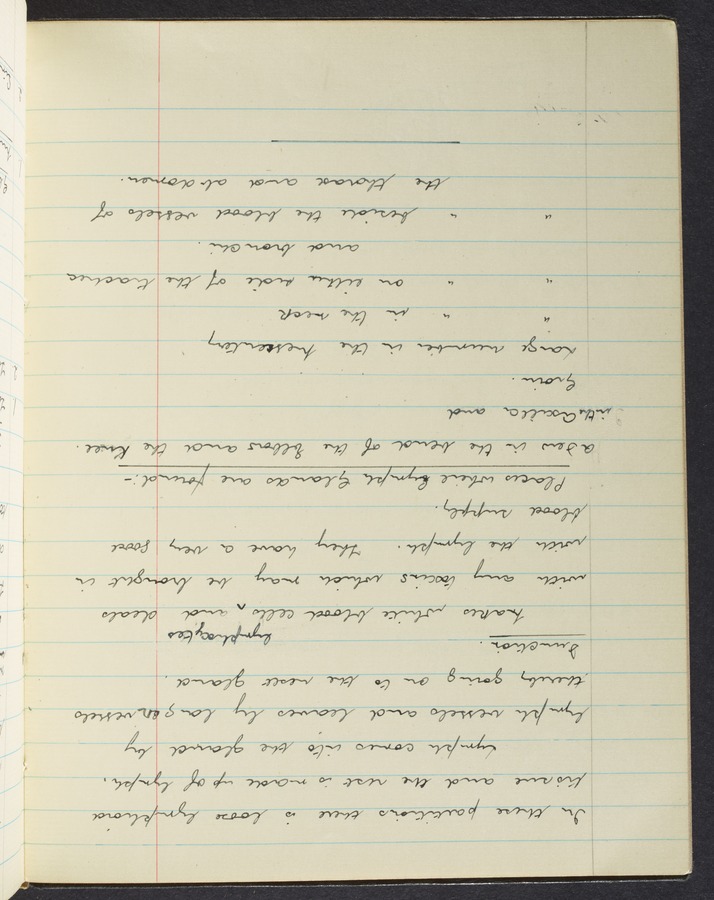 In these partitions there is loose lymphoid
tissue and the rest is made up of lymph.
Lymph comes into the gland by
lymph vessels and leaves by larger vessels
thereby going on to the next gland.
Function.
lymphocytes
Makes white blood cells ^ and deals
with any toxins which may be brought in
with the lymph. They have a very good
blood supply.
Places where Lymph Glands are found:-
a few in the bend of the Elbows and the Knee.
in the Axilla and
Groin.
Large number in the Mesentery
" " in the neck
" " on either side of the trachea
and bronchi.
" " beside the blood vessels of
the thorax and abdomen.